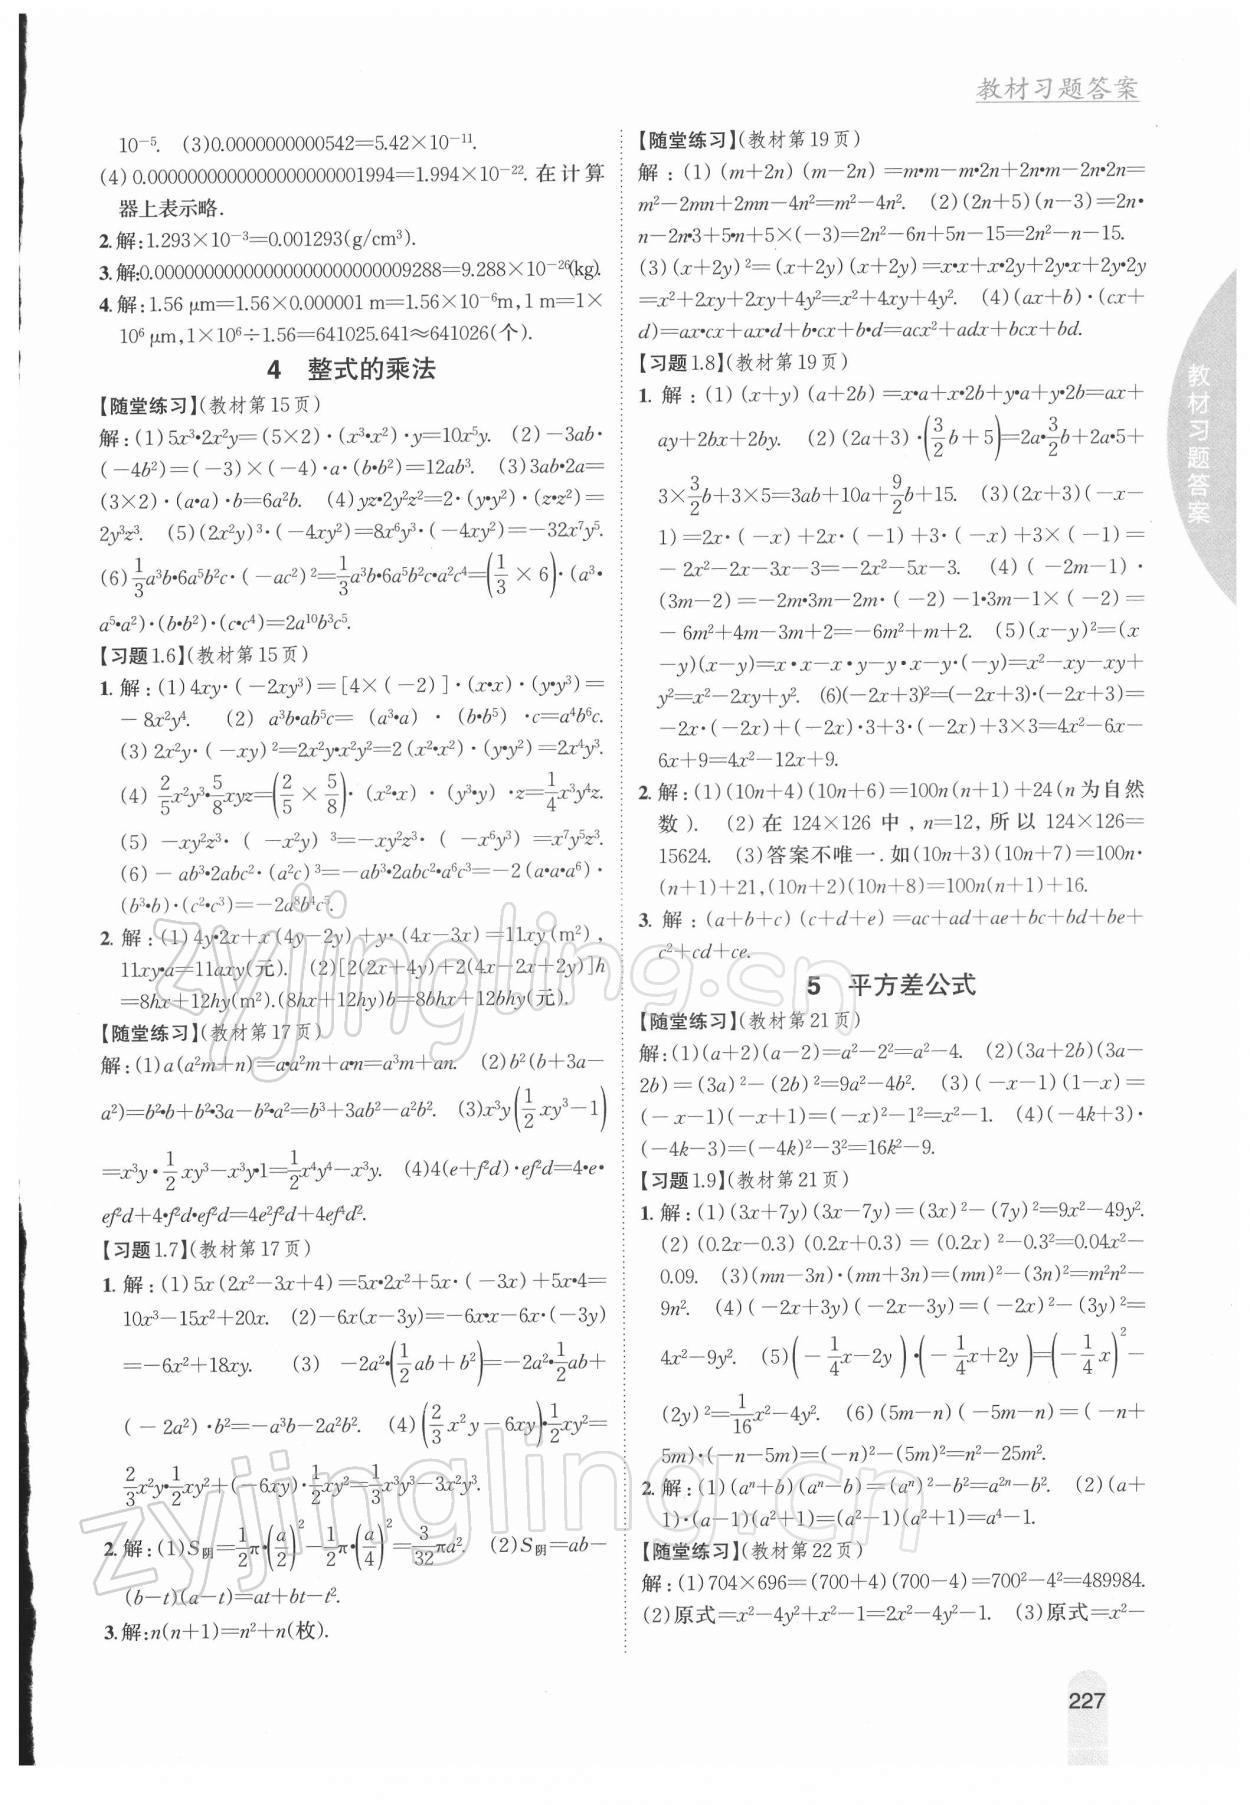 教材习题答案
10⁻⁵. (3)0.0000000000542=5.42×10⁻¹¹.
(4)0.0000000000000000000001994=1.994×10⁻²². 在计算
器上表示略.
2.解:1.293×10⁻³=0.001293(g/cm³).
3.解:0.00000000000000000000000009288=9.288×10⁻²⁶(kg).
4.解:1.56 μm=1.56×0.000001 m=1.56×10⁻⁶m,1 m=1×
10⁶ μm,1×10⁶÷1.56=641025.641≈641026(个).
4 整式的乘法
【随堂练习】(教材第15页)
解:(1)5x³•2x²y=(5×2)·(x³•x²)·y=10x⁵y. (2)-3ab·
(-4b²)=(-3)×(-4)·a·(b•b²)=12ab³. (3)3ab•2a=
(3×2)·(a•a)·b=6a²b. (4)yz•2y²z²=2·(y•y²)·(z•z²)=
2y³z³. (5)(2x²y)³·(-4xy²)=8x⁶y³·(-4xy²)=-32x⁷y⁵.
(6)1/3a³b•6a⁵b²c·(-ac²)²=1/3a³b•6a⁵b²c•a²c⁴=(1/3×6)·(a³•
a⁵•a²)·(b•b²)·(c•c⁴)=2a¹⁰b³c⁵.
【习题1.6】(教材第15页)
1.解:(1)4xy·(-2xy³)=[4×(-2)]·(x•x)·(y•y³)=
-8x²y⁴. (2) a³b•ab⁵c=(a³•a)·(b•b⁵)·c=a⁴b⁶c.
(3)2x²y·(-xy)²=2x²y•x²y²=2(x²•x²)·(y•y²)=2x⁴y³.
(4) 2/5x²y³•5/8xyz=(2/5×5/8)·(x²•x)·(y³•y)·z=1/4x³y⁴z.
(5) -xy²z³·(-x²y)³=-xy²z³·(-x⁶y³)=x⁷y⁵z³.
(6)-ab³•2abc²·(a²c)³=-ab³•2abc²•a⁶c³=-2(a•a•a⁶)·
(b³•b)·(c²•c³)=-2a⁸b⁴c⁵.
2.解:(1)4y•2x+x(4y-2y)+y·(4x-3x)=11xy(m²),
11xy•a=11axy(元). (2)[2(2x+4y)+2(4x-2x+2y)]h
=8hx+12hy(m²).(8hx+12hy)b=8bhx+12bhy(元).
【随堂练习】(教材第17页)
解:(1)a(a²m+n)=a•a²m+a•n=a³m+an. (2)b²(b+3a-
a²)=b²•b+b²•3a-b²•a²=b³+3ab²-a²b². (3)x³y(1/2xy³-1)
=x³y·1/2xy³-x³y•1=1/2x⁴y⁴-x³y. (4)4(e+f²d)·ef²d=4•e•
ef²d+4•f²d•ef²d=4e²f²d+4ef⁴d².
【习题1.7】(教材第17页)
1.解:(1)5x(2x²-3x+4)=5x•2x²+5x·(-3x)+5x•4=
10x³-15x²+20x. (2)-6x(x-3y)=-6x•x-6x·(-3y)
=-6x²+18xy. (3) -2a²•(1/2ab+b²)=-2a²•1/2ab+
(-2a²)·b²=-a³b-2a²b². (4)(2/3x²y-6xy)•1/2xy²=
2/3x²y•1/2xy²+(-6xy)·1/2xy²=1/3x³y³-3x²y³.
2.解:(1)S阴=1/2π•(a/2)²-1/2π·(a/4)²=3/32πa². (2)S阴=ab-
(b-t)(a-t)=at+bt-t².
3.解:n(n+1)=n²+n(枚).
【随堂练习】(教材第19页)
解:(1)(m+2n)(m-2n)=m•m-m•2n+2n•m-2n•2n=
m²-2mn+2mn-4n²=m²-4n². (2)(2n+5)(n-3)=2n•
n-2n•3+5•n+5×(-3)=2n²-6n+5n-15=2n²-n-15.
(3)(x+2y)²=(x+2y)(x+2y)=x•x+x•2y+2y•x+2y•2y
=x²+2xy+2xy+4y²=x²+4xy+4y². (4)(ax+b)·(cx+
d)=ax•cx+ax•d+b•cx+b•d=acx²+adx+bcx+bd.
【习题1.8】(教材第19页)
1.解:(1)(x+y)(a+2b)=x•a+x•2b+y•a+y•2b=ax+
ay+2bx+2by. (2)(2a+3)·(3/2b+5)=2a•3/2b+2a•5+
3×3/2b+3×5=3ab+10a+9/2b+15. (3)(2x+3)(-x-
1)=2x·(-x)+2x·(-1)+3·(-x)+3×(-1)=
-2x²-2x-3x-3=-2x²-5x-3. (4)(-2m-1)·
(3m-2)=-2m•3m-2m·(-2)-1•3m-1×(-2)=
-6m²+4m-3m+2=-6m²+m+2. (5)(x-y)²=(x
-y)(x-y)=x•x-x•y-y•x-y·(-y)=x²-xy-xy+
y²=x²-2xy+y². (6)(-2x+3)²=(-2x+3)·(-2x+3)=
-2x·(-2x)+(-2x)·3+3·(-2x)+3×3=4x²-6x-
6x+9=4x²-12x+9.
2.解:(1)(10n+4)(10n+6)=100n(n+1)+24(n为自然
数). (2)在124×126中,n=12,所以124×126=
15624. (3)答案不唯一.如(10n+3)(10n+7)=100n·
(n+1)+21,(10n+2)(10n+8)=100n(n+1)+16.
3.解:(a+b+c)(c+d+e)=ac+ad+ae+bc+bd+be+
c²+cd+ce.
5 平方差公式
【随堂练习】(教材第21页)
解:(1)(a+2)(a-2)=a²-2²=a²-4. (2)(3a+2b)(3a-
2b)=(3a)²-(2b)²=9a²-4b². (3)(-x-1)(1-x)=
(-x-1)(-x+1)=(-x)²-1²=x²-1. (4)(-4k+3)·
(-4k-3)=(-4k)²-3²=16k²-9.
【习题1.9】(教材第21页)
1.解:(1)(3x+7y)(3x-7y)=(3x)²-(7y)²=9x²-49y².
(2)(0.2x-0.3)(0.2x+0.3)=(0.2x)²-0.3²=0.04x²-
0.09. (3)(mn-3n)·(mn+3n)=(mn)²-(3n)²=m²n²-
9n². (4)(-2x+3y)(-2x-3y)=(-2x)²-(3y)²=
4x²-9y². (5)(-1/4x-2y)•(-1/4x+2y)=(-1/4x)²-
(2y)²=1/16x²-4y². (6)(5m-n)(-5m-n)=(-n+
5m)·(-n-5m)=(-n)²-(5m)²=n²-25m².
2.解:(1)(aⁿ+b)(aⁿ-b)=(aⁿ)²-b²=a²ⁿ-b². (2)(a+
1)·(a-1)(a²+1)=(a²-1)(a²+1)=a⁴-1.
【随堂练习】(教材第22页)
解:(1)704×696=(700+4)(700-4)=700²-4²=489984.
(2)原式=x²-4y²+x²-1=2x²-4y²-1. (3)原式=x²-
教材习题答案
227
zyjingling.cn
zyjingling.cn